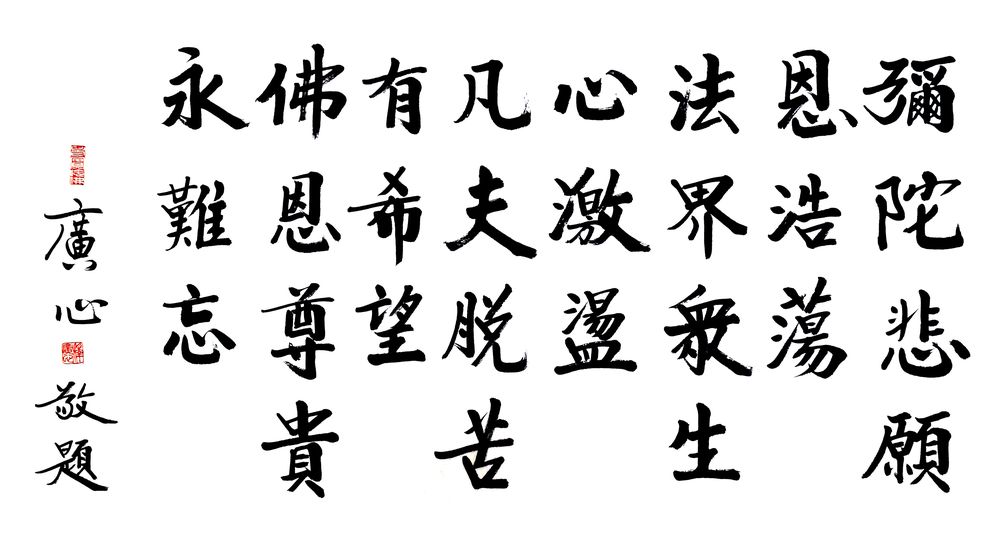 彌陀悲願
恩浩蕩
法界眾生
心激盪
凡夫脱苦
有希望
佛恩尊貴
永難忘
廣心敬題